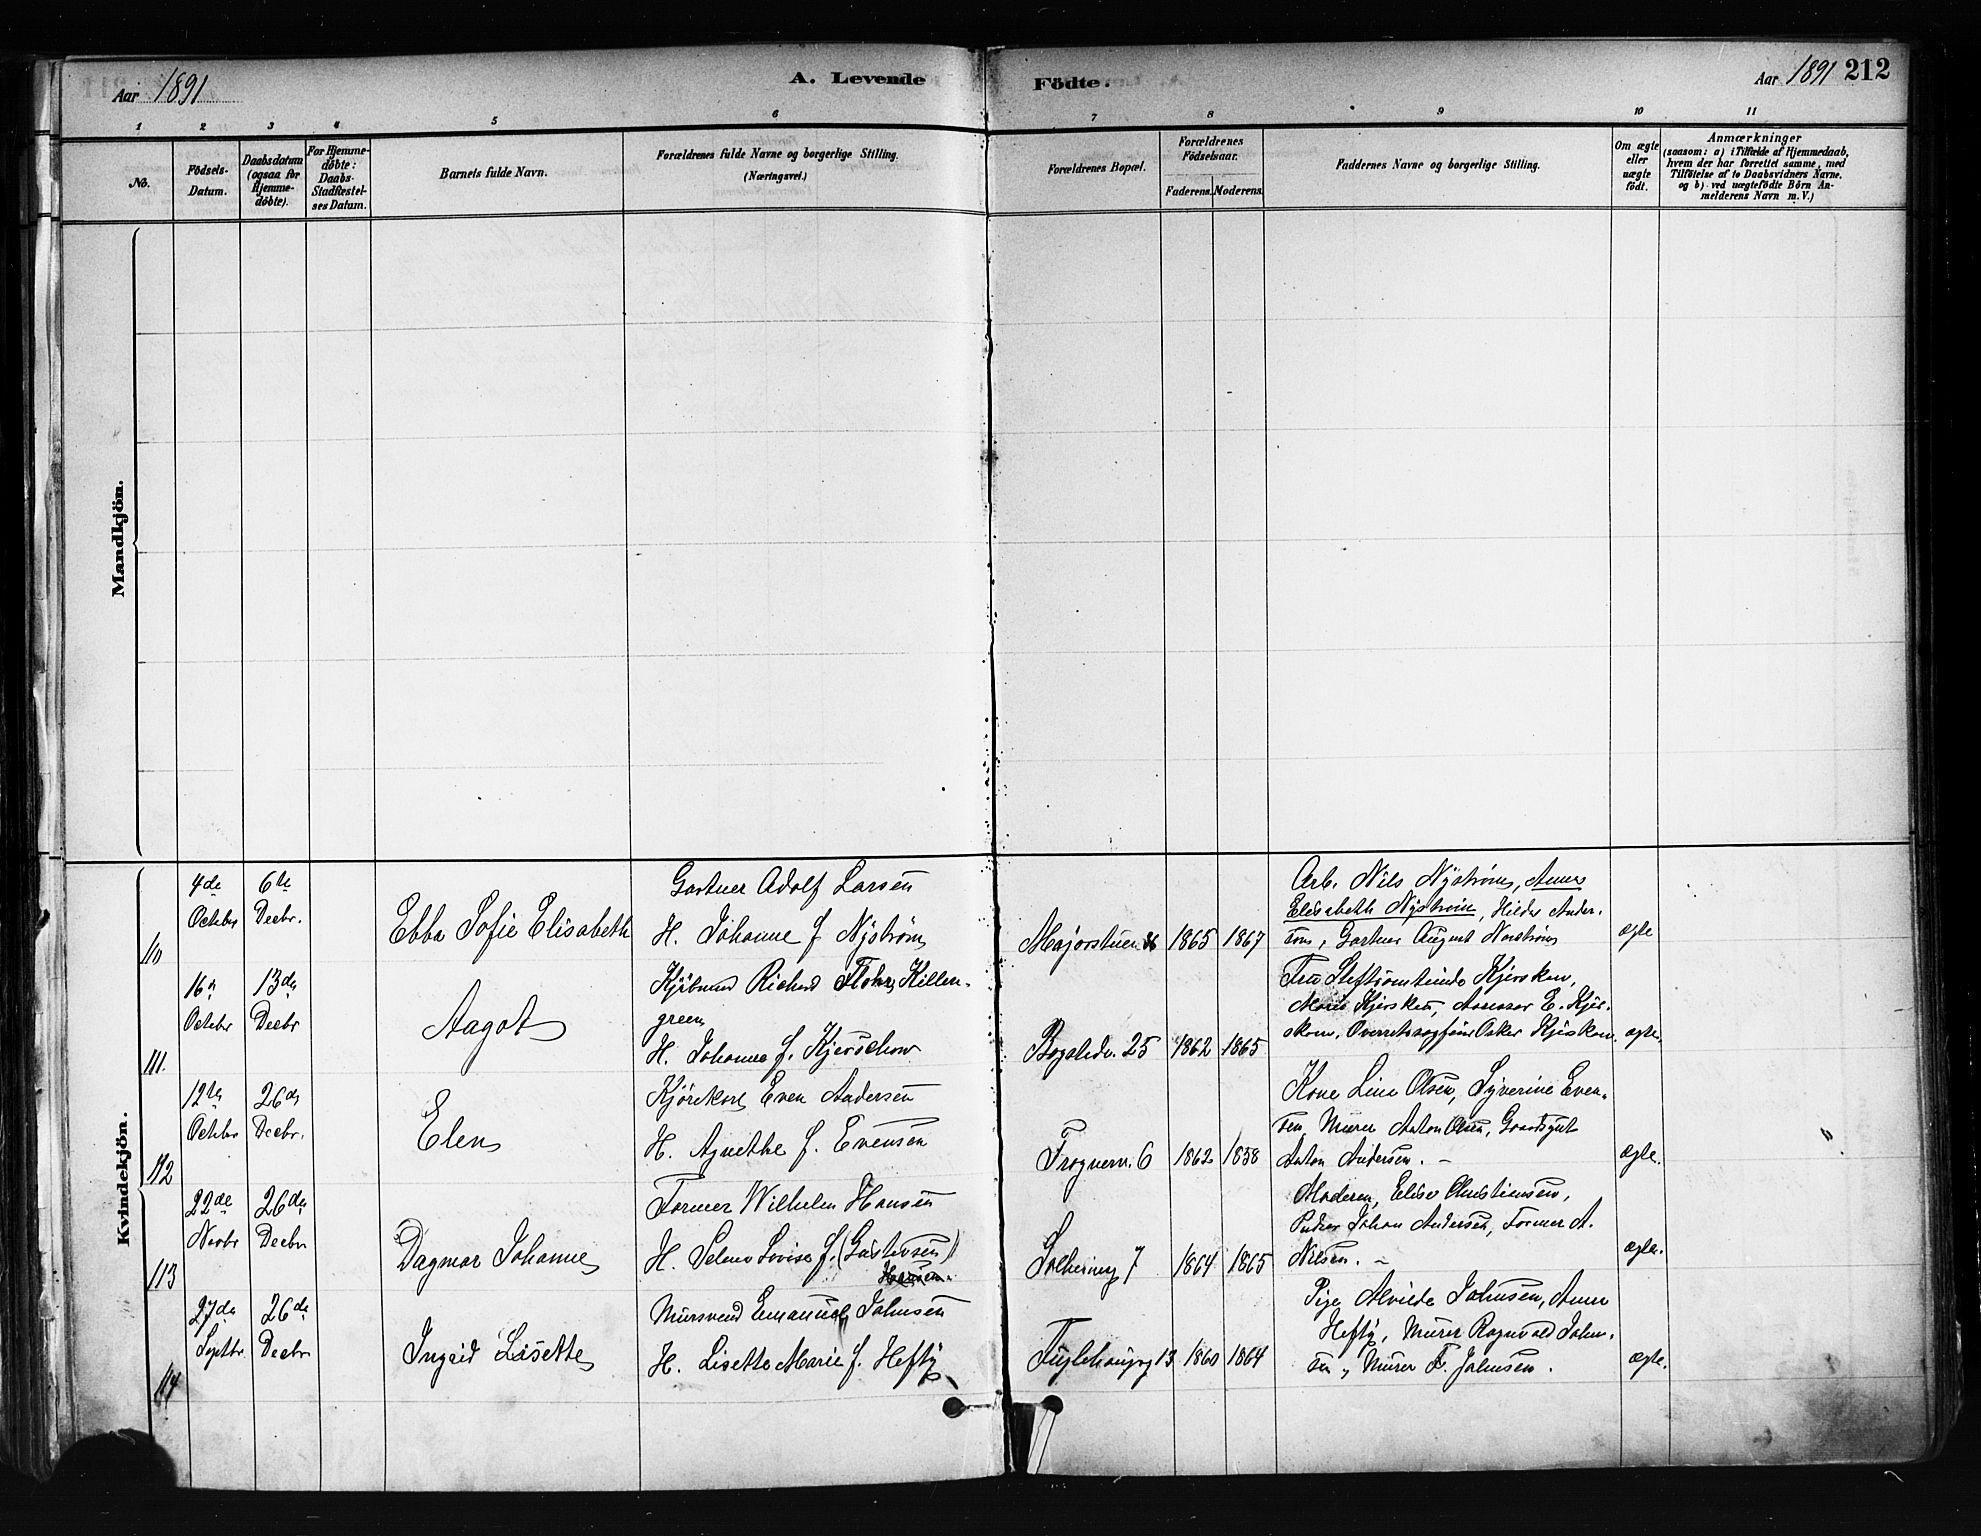 Aar 1891
A. Levende
Födte.
Aar 1891 212
1 2 3 4 5 6 7 8 9 10 11
No.
Födsels-
Datum.
Daabsdatum
(ogsaa for
Hjemme-
døbte).
For Hjemme-
døbte:
Daabs-
Stadfæstel-
ses Datum.
Barnets fulde Navn.
Forældrenes fulde Navne og borgerlige Stilling.
(Næringsvei.)
Forældrenes Bopæl.
Forældrenes
Födselsaar.
Faderens. Moderens.
Faddernes Navne og borgerlige Stilling.
Om ægte
eller
uægte
födt.
Anmærkninger
(saasom: a) i Tilfælde af Hjemmedaab,
hvem der har forrettet samme, med
Tilføielse af to Daabsvidners Navne,
og b) ved uægtefödte Börn An-
melderens Navn m. V.)
Mandkjön.
Kvindekjön.
110
4de
Octobr
6te
Decbr.
Ebba Sofie Elisabeth
Gartner Adolf Larsen
H. Johanne f. Nyström
Majorstuen 1865 1867
Arb. Nils Nyström, Anna
Elisabeth Nyström, Hilda Ander-
son, Gartner August Nordström
ægte
111.
16de
Octobr
13de
Decbr
Aagot
Kjøbmand Richard Flohr Killen-
green
H. Johanne f. Kjerschow
Bogstadv. 25 1862 1865
ægte.
112
12te
Octobr
26de
Decbr.
Elen
Kjørekarl Even Andersen
H. Agnethe f. Evensen
Frognerv. 6 1862 1858
Kone Lina Olsen, Syverine Even-
sen, Murer Anton Olsen, Gaardsgut
Anton Andersen. -
ægte.
113
22de
Novbr
26de
Decbr
Dagmar Johanne
Former Wilhelm Hansen
H. Selma Lovise f. (Gustavsen)
Hansen.
7 1864 1865
Moderen, Elise Christiansen,
Pudser Johan Andersen, Former A.
Nilsen. -
ægte.
114
27de
Septbr
26de
Decbr
Ingrid Lisette
Mursvend Emanuel Johnsen
H. Lisette Marie f. Hefty
Fuglehaugg 13 1860 1864
Pige Alvilde Johnsen, Anna
Hefty, Murer Ragnvald John-
sen, Murer F. Johnsen.
ægte.